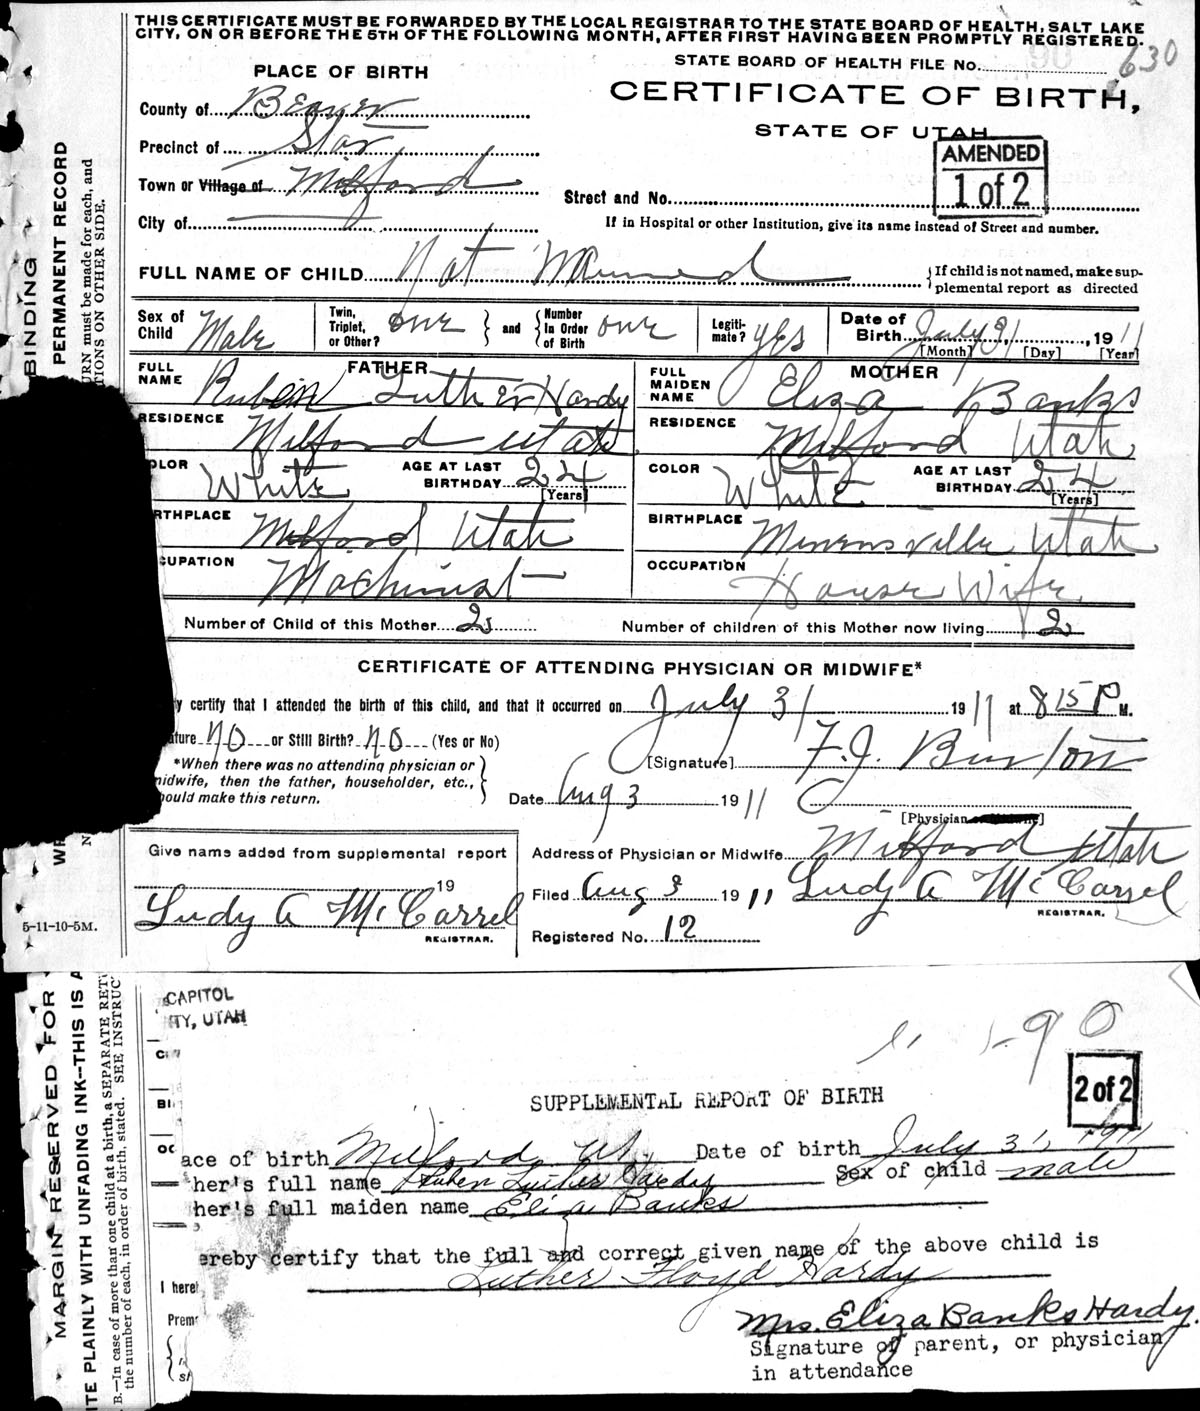 THIS CERTIFICATE MUST BE FORWARDED BY THE LOCAL REGISTRAR TO THE STATE BOARD OF HEALTH, SALT LAKE
CITY, ON OR BEFORE THE 5TH OF THE FOLLOWING MONTH, AFTER FIRST HAVING BEEN PROMPTLY REGISTERED.
STATE BOARD OF HEALTH FILE No. 630
PLACE OF BIRTH
CERTIFICATE OF BIRTH,
STATE OF UTAH
County of Beaver
Precinct of Star
AMENDED
1 of 2
Town or Village of Milford
Street and No.
City of
If in Hospital or other Institution, give its name instead of Street and number.
FULL NAME OF CHILD Not Named
{ If child is not named, make sup-
plemental report as directed
Sex of Child Male
Twin, Triplet, or Other? one } and { Number In Order of Birth one
Legiti-mate? yes
Date of Birth July 31, 1911
[Month] [Day] [Year]
FATHER
FULL NAME Ruben Luther Hardy
MOTHER
FULL MAIDEN NAME Eliza Banks
RESIDENCE Milford Utah
RESIDENCE Milford Utah
OLOR White AGE AT LAST BIRTHDAY 24 [Years]
COLOR White AGE AT LAST BIRTHDAY 24 [Years]
RTHPLACE Milford Utah
BIRTHPLACE Minersville Utah
CUPATION Machinist
OCCUPATION House Wife
Number of Child of this Mother 2
Number of children of this Mother now living 2
CERTIFICATE OF ATTENDING PHYSICIAN OR MIDWIFE*
y certify that I attended the birth of this child, and that it occurred on July 31 1911 at 8 15 P M.
ature NO or Still Birth? NO (Yes or No)
*When there was no attending physician or
midwife, then the father, householder, etc.,
ould make this return.
[Signature] F. J. Burton
Date Aug 3 1911
[Physician or Midwife]
Give name added from supplemental report
19
Ludy A McCarrel
REGISTRAR.
Address of Physician or Midwife Milford Utah
Filed Aug 3 1911 Ludy A McCarrel
REGISTRAR.
Registered No. 12
5-11-10-5M.
BINDING
PERMANENT RECORD
URN must be made for each, and
TIONS ON OTHER SIDE.
MARGIN RESERVED FOR
ITE PLAINLY WITH UNFADING INK--THIS IS A
B.—In case of more than one child at a birth, a SEPARATE RET
the number of each, in order of birth, stated. SEE INSTRUC
CAPITOL
TY, UTAH
90
2 of 2
SUPPLEMENTAL REPORT OF BIRTH
ace of birth Milford, Ut. Date of birth July 31, 1911
her's full name Ruben Luther Hardy Sex of child male
her's full maiden name Eliza Banks
ereby certify that the full and correct given name of the above child is
Luther Floyd Hardy
I here
Prem
Mrs. Eliza Banks Hardy.
Signature of parent, or physician
in attendance